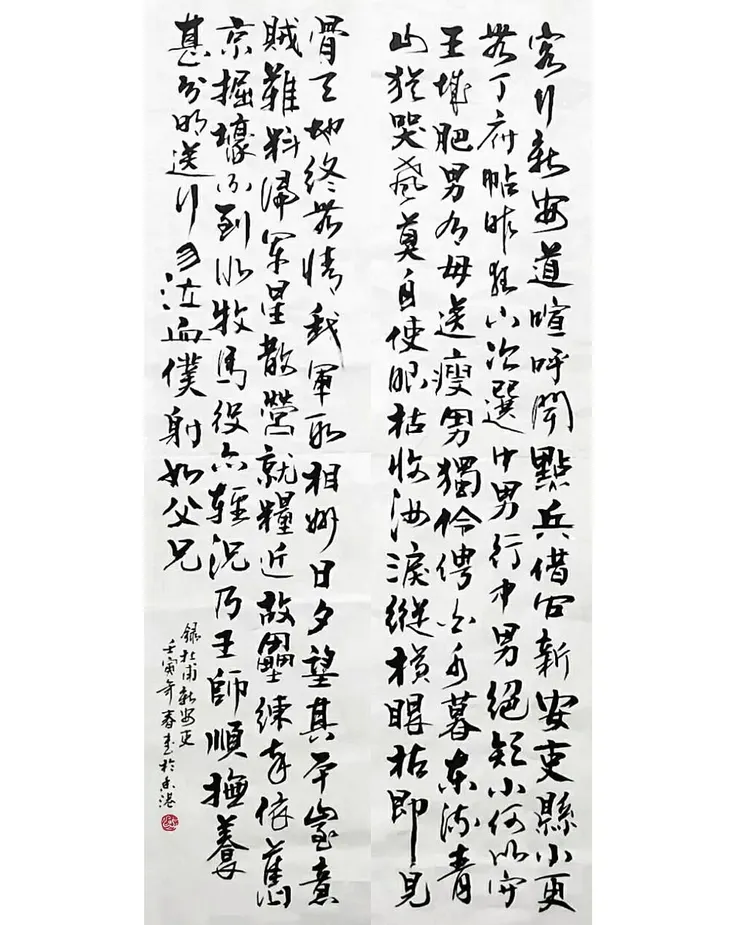 客行新安道喧呼聞點兵借問新安吏縣小更
無丁府帖昨夜下次選中男行中男絕短小何以守
王城肥男有母送瘦男獨伶俜白水暮東流青
山猶哭聲莫自使眼枯收汝淚縱橫眼枯即見
骨天地終無情我軍取相州日夕望其平豈意
賊難料歸軍星散營就糧近故壘練卒依舊
京掘壕不到水牧馬役亦輕況乃王師順撫養
甚分明送行勿泣血僕射如父兄
錄杜甫新安吏
壬寅年春書於香港